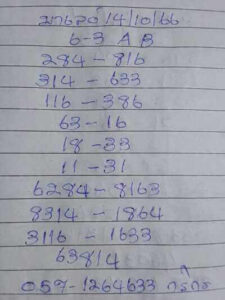 มาเลย์ 14/10/66
6-3 A B
284 - 816
314 - 633
116 - 386
63 - 16
18 - 33
11 - 31
6284 - 8163
8314 - 1864
3116 - 1633
63814
059-1264633